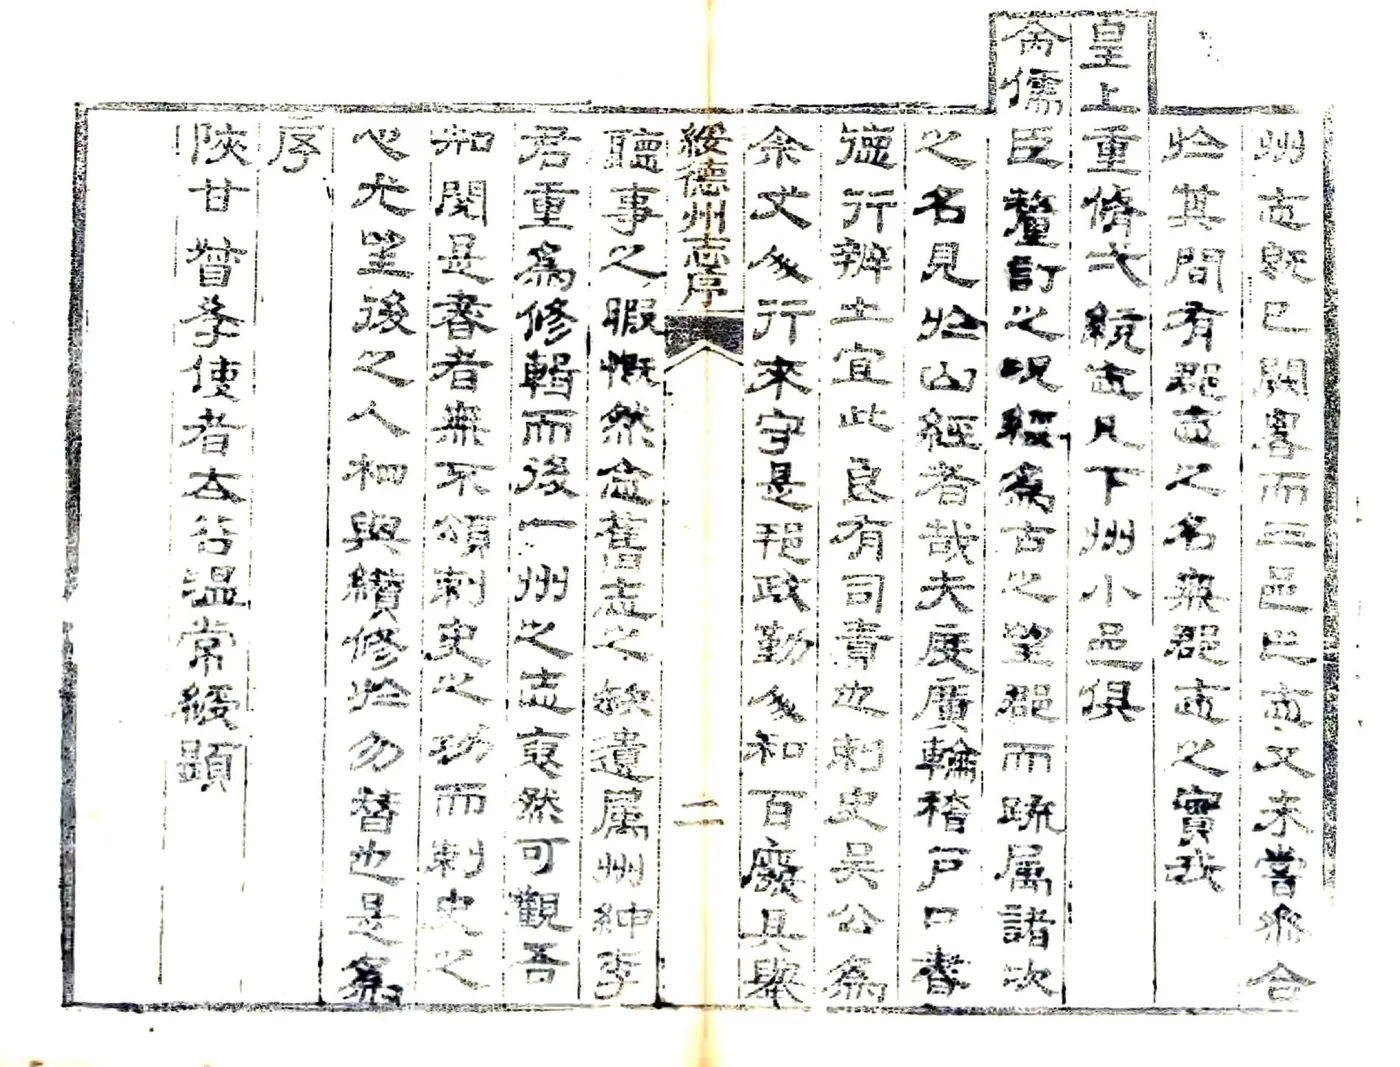 州志既已闕略而三邑已志又未嘗祭合
於其間有郡志之名無郡志之實我
皇上重脩弌統志凡下州小邑俱
命儒臣釐訂之況經為古之望郡而疏属諸次
之名見於山經者哉夫度廣輪稽戶口書
德行辨土宜此良有司責也刺史吴公為
余丈人行來守是邦政勤人和百廢具舉
綏德州志序
二
聽事之暇慨然念舊志之缺遺属州紳李
君重為修輯而後一州之志褎然可觀吾
知閱是書者無不頌刺史之功而刺史之
心尤望後之人相與續修於勿替也是為
序
陝甘督學使者太谷温常綬題